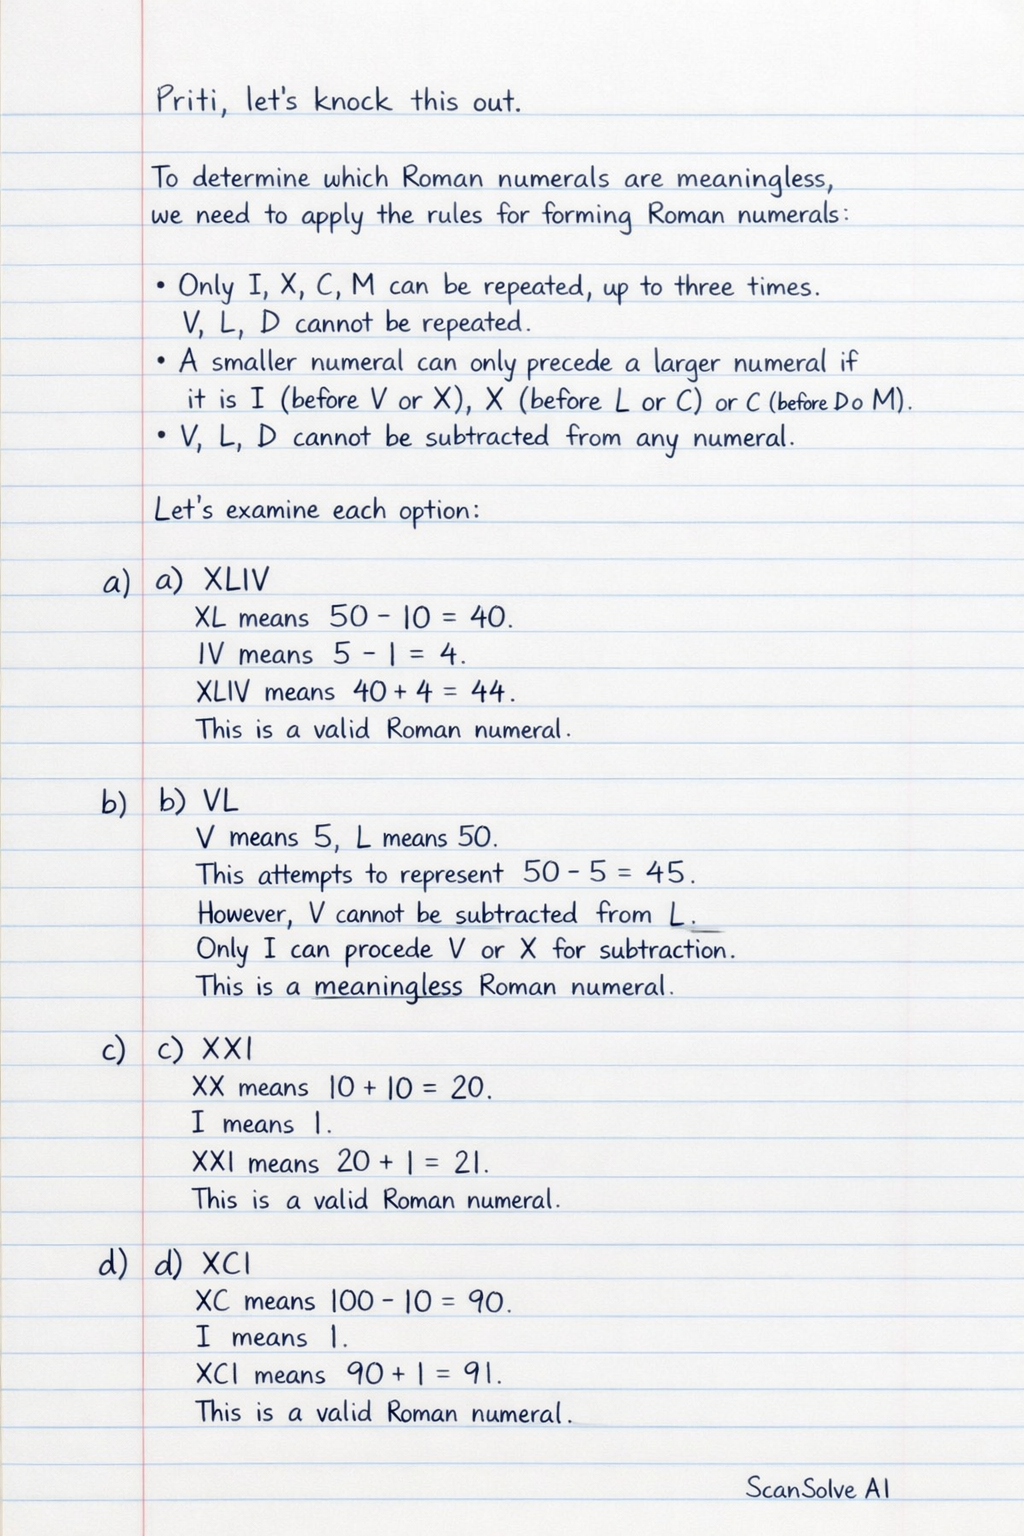 Priti, let's knock this out.
To determine which Roman numerals are meaningless,
we need to apply the rules for forming Roman numerals:
• Only I, X, C, M can be repeated, up to three times.
V, L, D cannot be repeated.
• A smaller numeral can only precede a larger numeral if
it is I (before V or X), X (before L or C) or C (before D o M).
• V, L, D cannot be subtracted from any numeral.
Let's examine each option:
a) a) XLIV
XL means 50 - 10 = 40.
IV means 5 - 1 = 4.
XLIV means 40 + 4 = 44.
This is a valid Roman numeral.
b) b) VL
V means 5, L means 50.
This attempts to represent 50 - 5 = 45.
However, V cannot be subtracted from L.
Only I can procede V or X for subtraction.
This is a meaningless Roman numeral.
c) c) XXI
XX means 10 + 10 = 20.
I means 1.
XXI means 20 + 1 = 21.
This is a valid Roman numeral.
d) d) XCI
XC means 100 - 10 = 90.
I means 1.
XCI means 90 + 1 = 91.
This is a valid Roman numeral.
ScanSolve AI